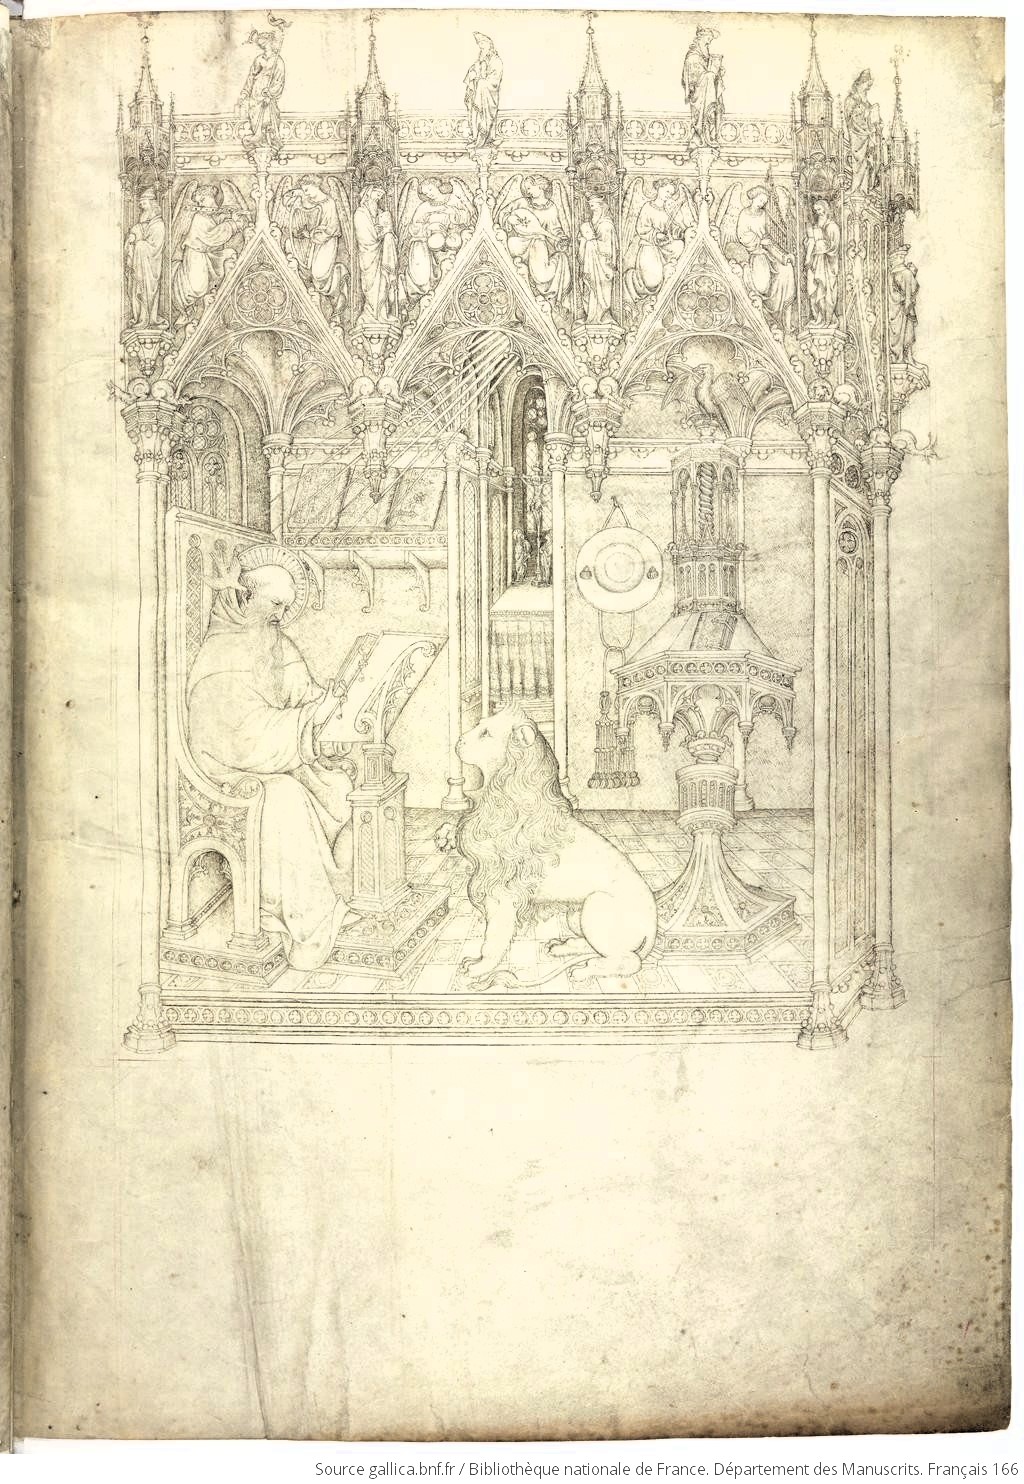 Source gallica.bnf.fr / Bibliothèque nationale de France. Département des Manuscrits. Français 166